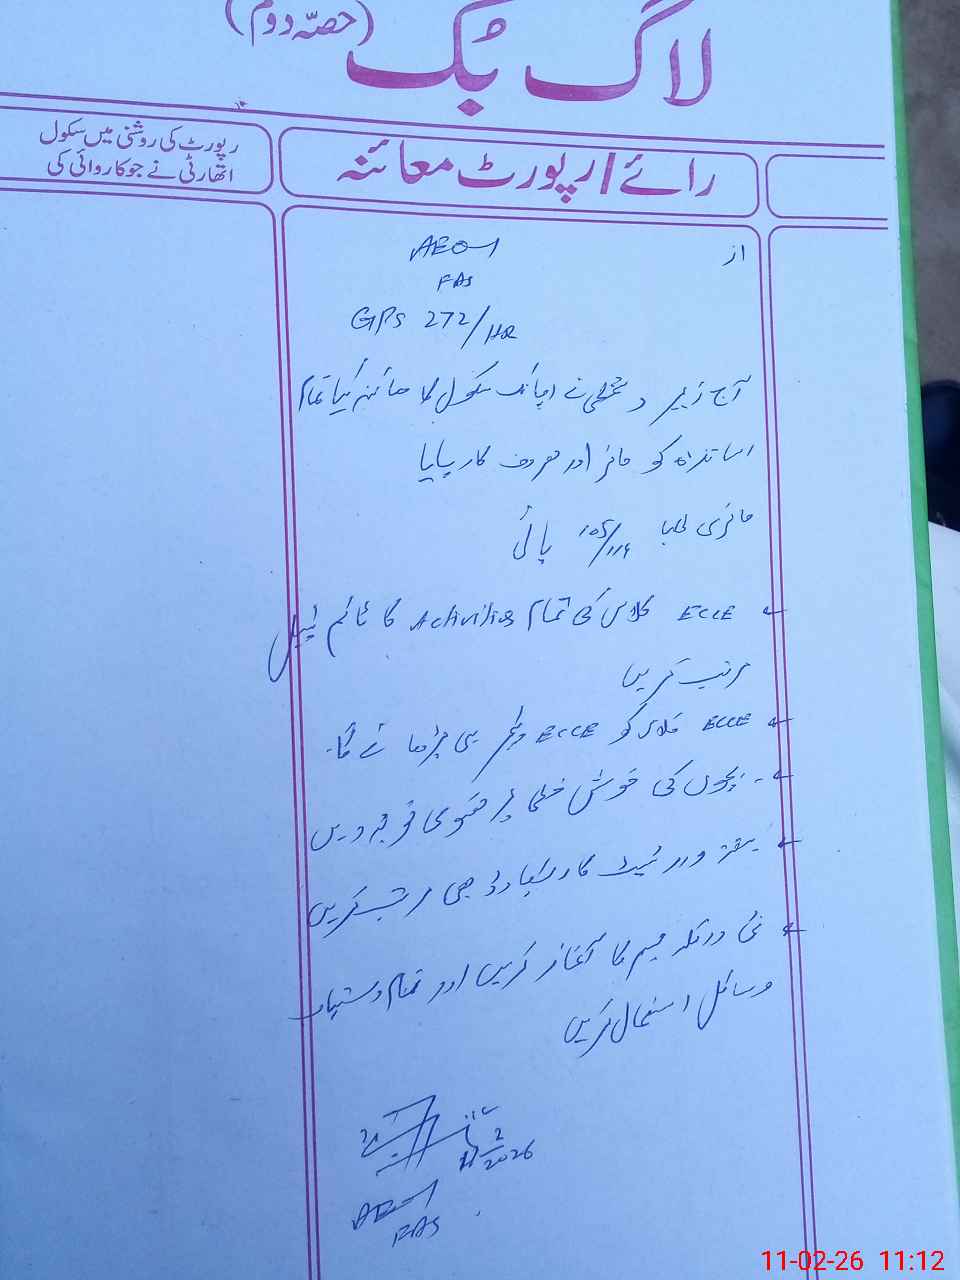 لاگ بک (حصّہ دوم)
رائے/رپورٹ معائنہ
رپورٹ کی روشنی میں سکول
اتھارٹی نے جو کاروائی کی
از
AEO
FAS
GPS 272/HR
آج زیر دستخطی نے اچانک سکول کا معائنہ کیا تمام
اساتذہ کو حاضر اور مصروف کار پایا
حاضری طلبا ۱۰۵/۱۱۶ پائی
ECCE کلاس کی تمام Activities کا ٹائم ٹیبل
مرتب کریں
ECCE کلاس کو ECCE ہی پڑھائے گا۔
بچوں کی خوش خطی پر خصوصی توجہ دیں
ٹیسٹ کا ریکارڈ بھی مرتب کریں
نئی داخلہ مہم کا آغاز کریں اور تمام دستیاب
وسائل استعمال کریں
11/2/2026
AEO
FAS
11-02-26 11:12